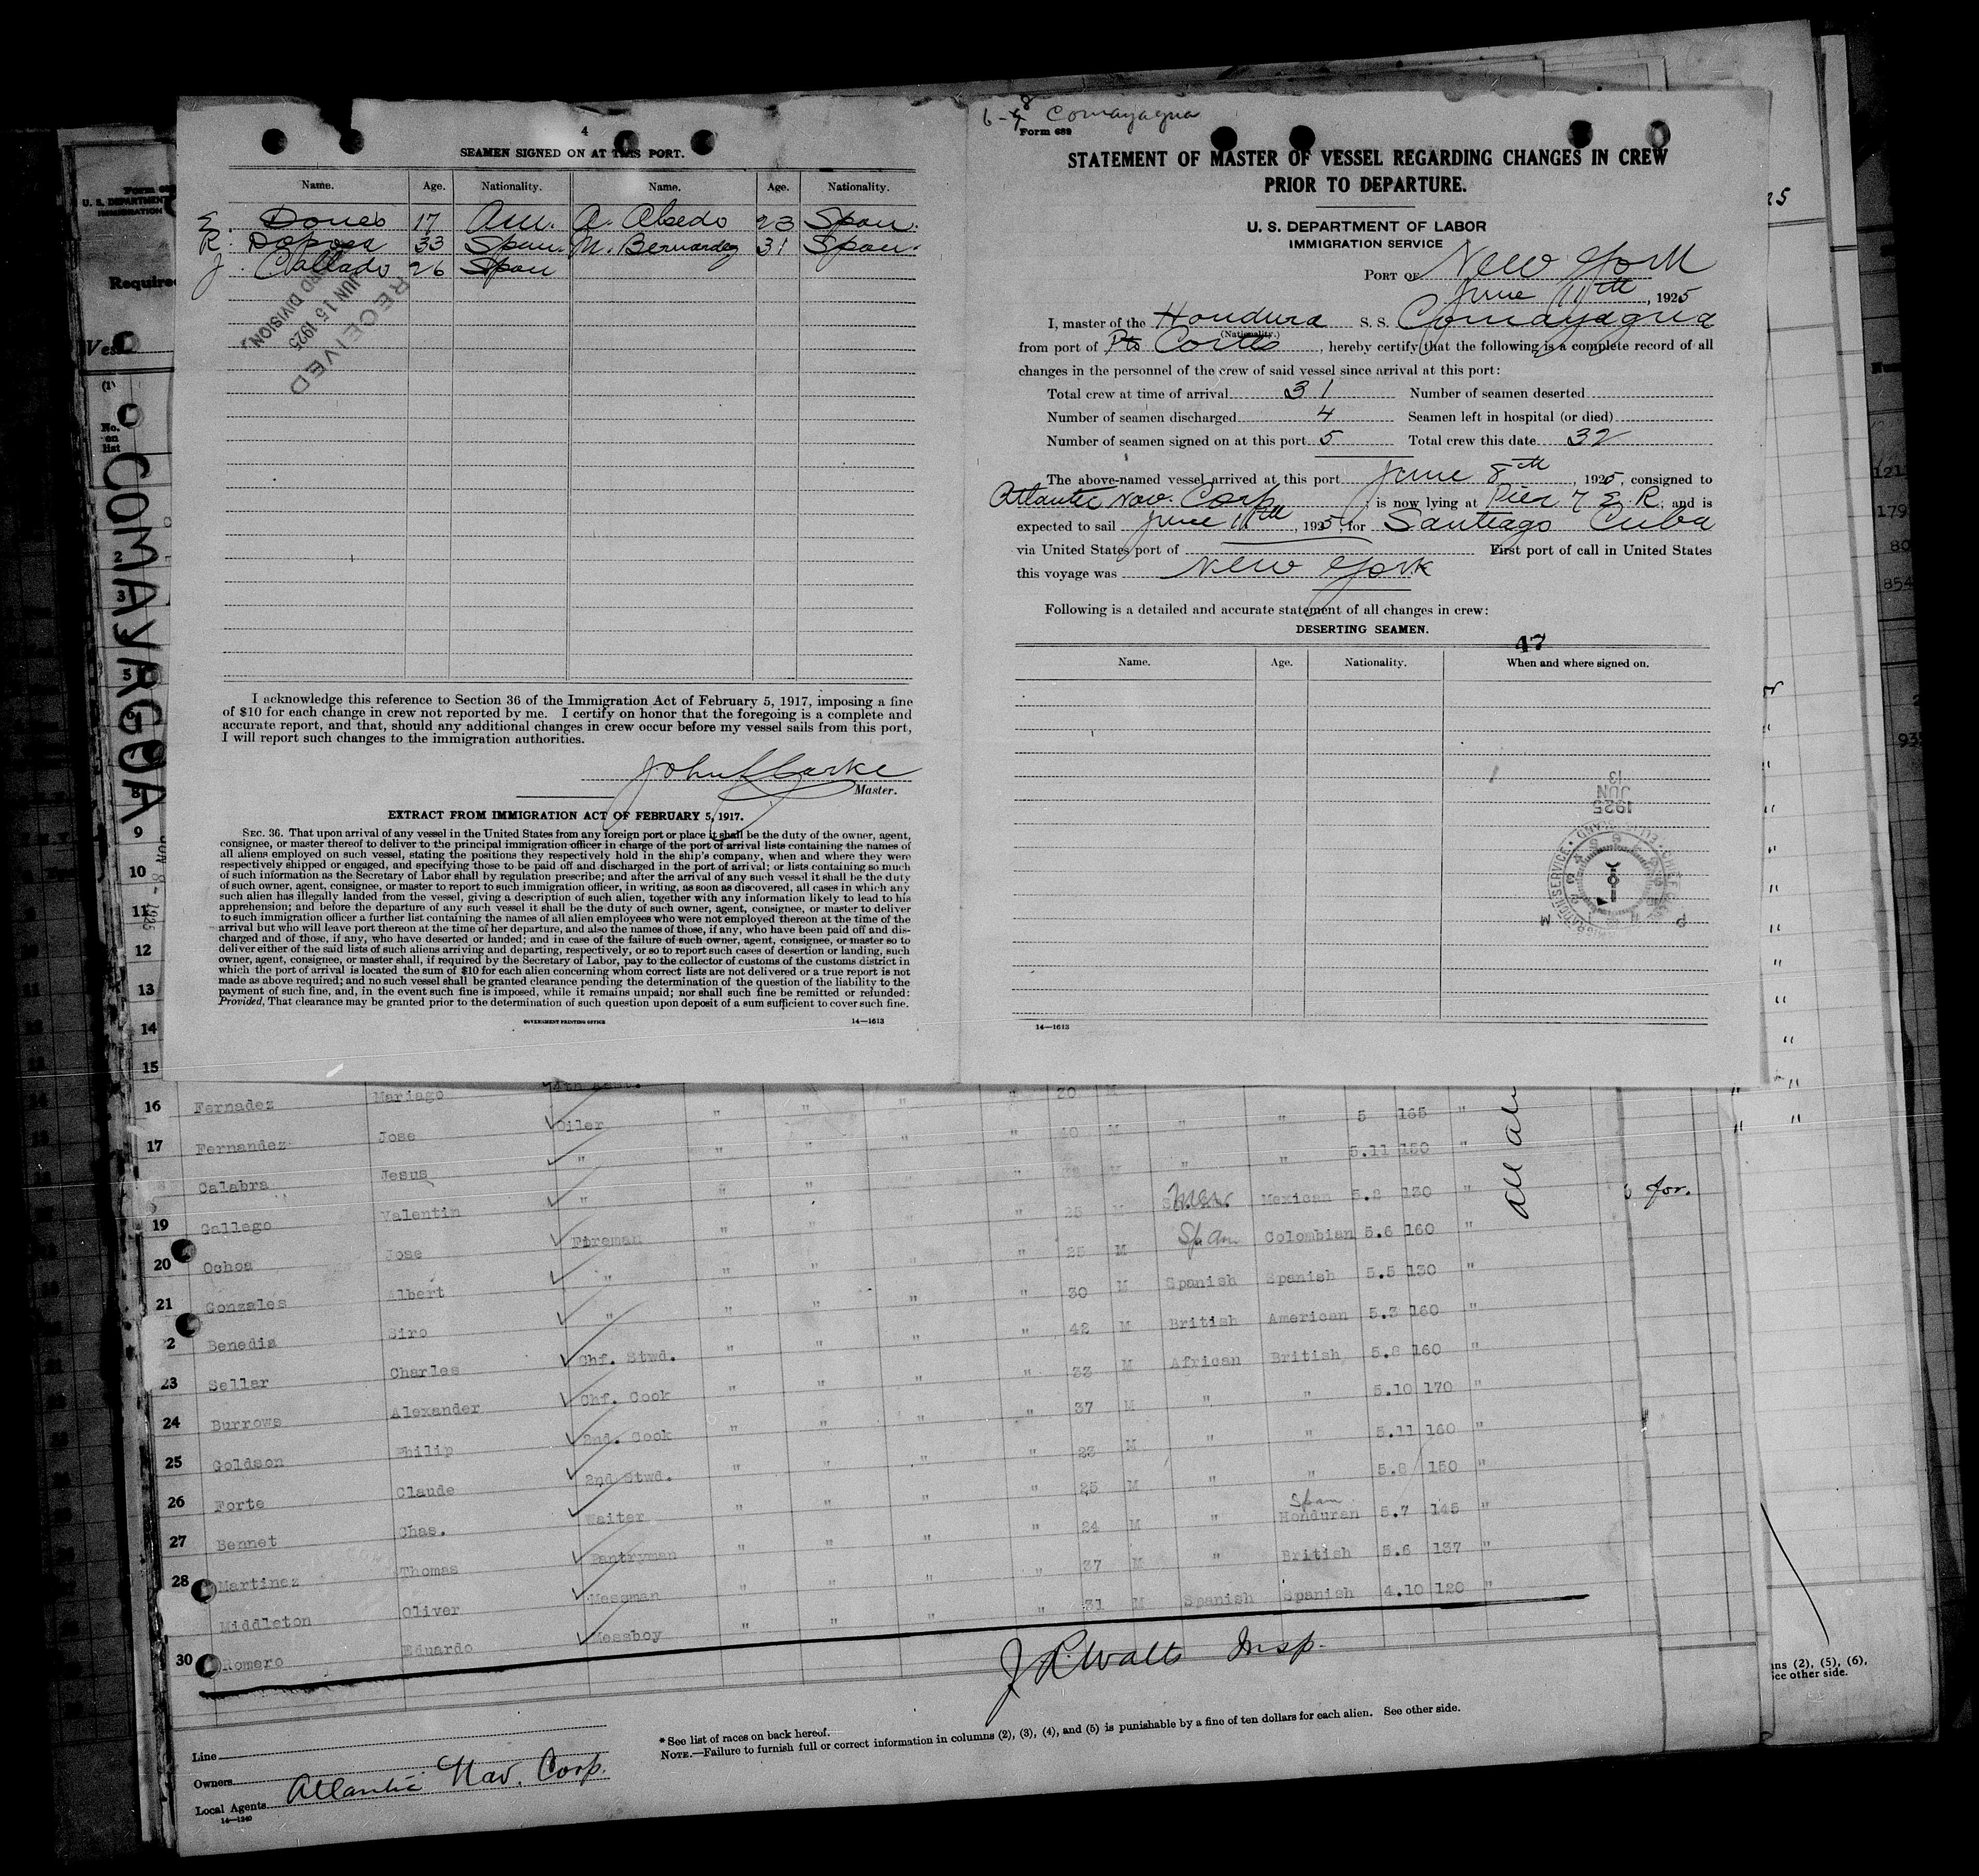 4
SEAMEN SIGNED ON AT THIS PORT.
Name. Age. Nationality. Name. Age. Nationality.
E. Dones 17 Am. A. Alsedo 23 Span.
R. 33 Span. M. Bernardez 31 Span.
J. Collado 26 Span
RECEIVED
JUN 15 1925
RECORD DIVISION
I acknowledge this reference to Section 36 of the Immigration Act of February 5, 1917, imposing a fine
of $10 for each change in crew not reported by me. I certify on honor that the foregoing is a complete and
accurate report, and that, should any additional changes in crew occur before my vessel sails from this port,
I will report such changes to the immigration authorities.
Master.
EXTRACT FROM IMMIGRATION ACT OF FEBRUARY 5, 1917.
SEC. 36. That upon arrival of any vessel in the United States from any foreign port or place it shall be the duty of the owner, agent,
consignee, or master thereof to deliver to the principal immigration officer in charge of the port of arrival lists containing the names of
all aliens employed on such vessel, stating the positions they respectively hold in the ship's company, when and where they were
respectively shipped or engaged, and specifying those to be paid off and discharged in the port of arrival; or lists containing so much
of such information as the Secretary of Labor shall by regulation prescribe; and after the arrival of any such vessel it shall be the duty
of such owner, agent, consignee, or master to report to such immigration officer, in writing, as soon as discovered, all cases in which any
such alien has illegally landed from the vessel, giving a description of such alien, together with any information likely to lead to his
apprehension; and before the departure of any such vessel it shall be the duty of such owner, agent, consignee, or master to deliver
to such immigration officer a further list containing the names of all alien employees who were not employed thereon at the time of the
arrival but who will leave port thereon at the time of her departure, and also the names of those, if any, who have been paid off and dis-
charged and of those, if any, who have deserted or landed; and in case of the failure of such owner, agent, consignee, or master so to
deliver either of the said lists of such aliens arriving and departing, respectively, or so to report such cases of desertion or landing, such
owner, agent, consignee, or master shall, if required by the Secretary of Labor, pay to the collector of customs of the customs district in
which the port of arrival is located the sum of $10 for each alien concerning whom correct lists are not delivered or a true report is not
made as above required; and no such vessel shall be granted clearance pending the determination of the question of the liability to the
payment of such fine, and, in the event such fine is imposed, while it remains unpaid; nor shall such fine be remitted or refunded:
Provided, That clearance may be granted prior to the determination of such question upon deposit of a sum sufficient to cover such fine.
GOVERNMENT PRINTING OFFICE 14—1613
6-8 Comayagua
Form 689
STATEMENT OF MASTER OF VESSEL REGARDING CHANGES IN CREW
PRIOR TO DEPARTURE.
U. S. DEPARTMENT OF LABOR
IMMIGRATION SERVICE
PORT OF New York
June 11th, 1925
I, master of the Hondura S. S. Comayagua
(Nationality.)
from port of Pto Cortes, hereby certify that the following is a complete record of all
changes in the personnel of the crew of said vessel since arrival at this port:
Total crew at time of arrival 31 Number of seamen deserted
Number of seamen discharged 4 Seamen left in hospital (or died)
Number of seamen signed on at this port 5 Total crew this date 32
The above-named vessel arrived at this port June 8th, 1925, consigned to
Atlantic Nav. Corp, is now lying at Pier 7 E. R., and is
expected to sail June 11th, 1925, for Santiago Cuba
via United States port of First port of call in United States
this voyage was New York
Following is a detailed and accurate statement of all changes in crew:
DESERTING SEAMEN.
47
Name. Age. Nationality. When and where signed on.
1925
JUN
13
14—1613
COMAYAGUA
JUN 8 - 1925
16 Fernadez Mariago 4th Asst. " " " " 20 M
17 Fernandez Jose Oiler " " " " 40 M " " 5 165 "
Calabra Jesus " " " " " M " " 5.11 150 "
19 Gallego Valentin " " " " " 25 M Mex. Mexican 5.2 130 "
20 Ochoa Jose Fireman " " " " 25 M Span Colombian 5.6 160 "
21 Gonzales Albert " " " " " 30 M Spanish Spanish 5.5 130 "
2 Benedia Siro " " " " " 42 M British American 5.3 160 "
23 Sellar Charles Chf. Stwd. " " " " 33 M African British 5.8 160 "
24 Burrows Alexander Chf. Cook " " " " 37 M " " 5.10 170 "
25 Goldson Philip 2nd. Cook " " " " 23 M " " 5.11 160 "
26 Forte Claude 2nd Stwd. " " " " 25 M " " 5.8 150 "
27 Bennet Chas. Waiter " " " " 24 M " Span Honduran 5.7 145 "
28 Martinez Thomas Pantryman " " " " 37 M " British 5.6 137 "
Middleton Oliver Messman " " " " 31 M Spanish Spanish 4.10 120 "
30 Romero Eduardo Messboy " " " "
J R Walts Insp.
Line
Owners
Local Agents Atlantic Nav. Corp.
14—1240
* See list of races on back hereof.
NOTE.—Failure to furnish full or correct information in columns (2), (3), (4), and (5) is punishable by a fine of ten dollars for each alien. See other side.
for.